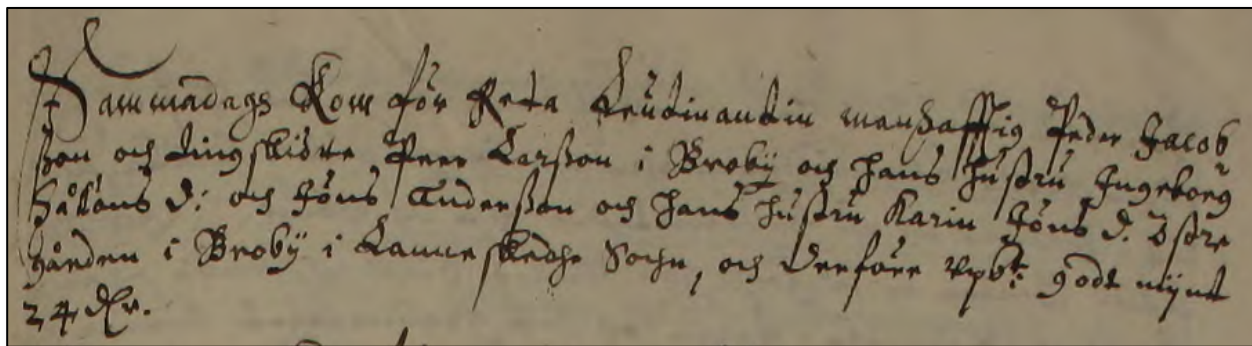 Sammadags kom för Reta Leutinantin manhafftig Peder Jacob
ßon och tingskifte Peer Larßon i Broby och hans hustru Ingeborg
Håkons d: och Jöns Andersson och hans hustru Karin Jöns d. Östre
gården i Broby i Lanneskedhe Sochn, och derföre vpbr: godt mynt
24 dlr.